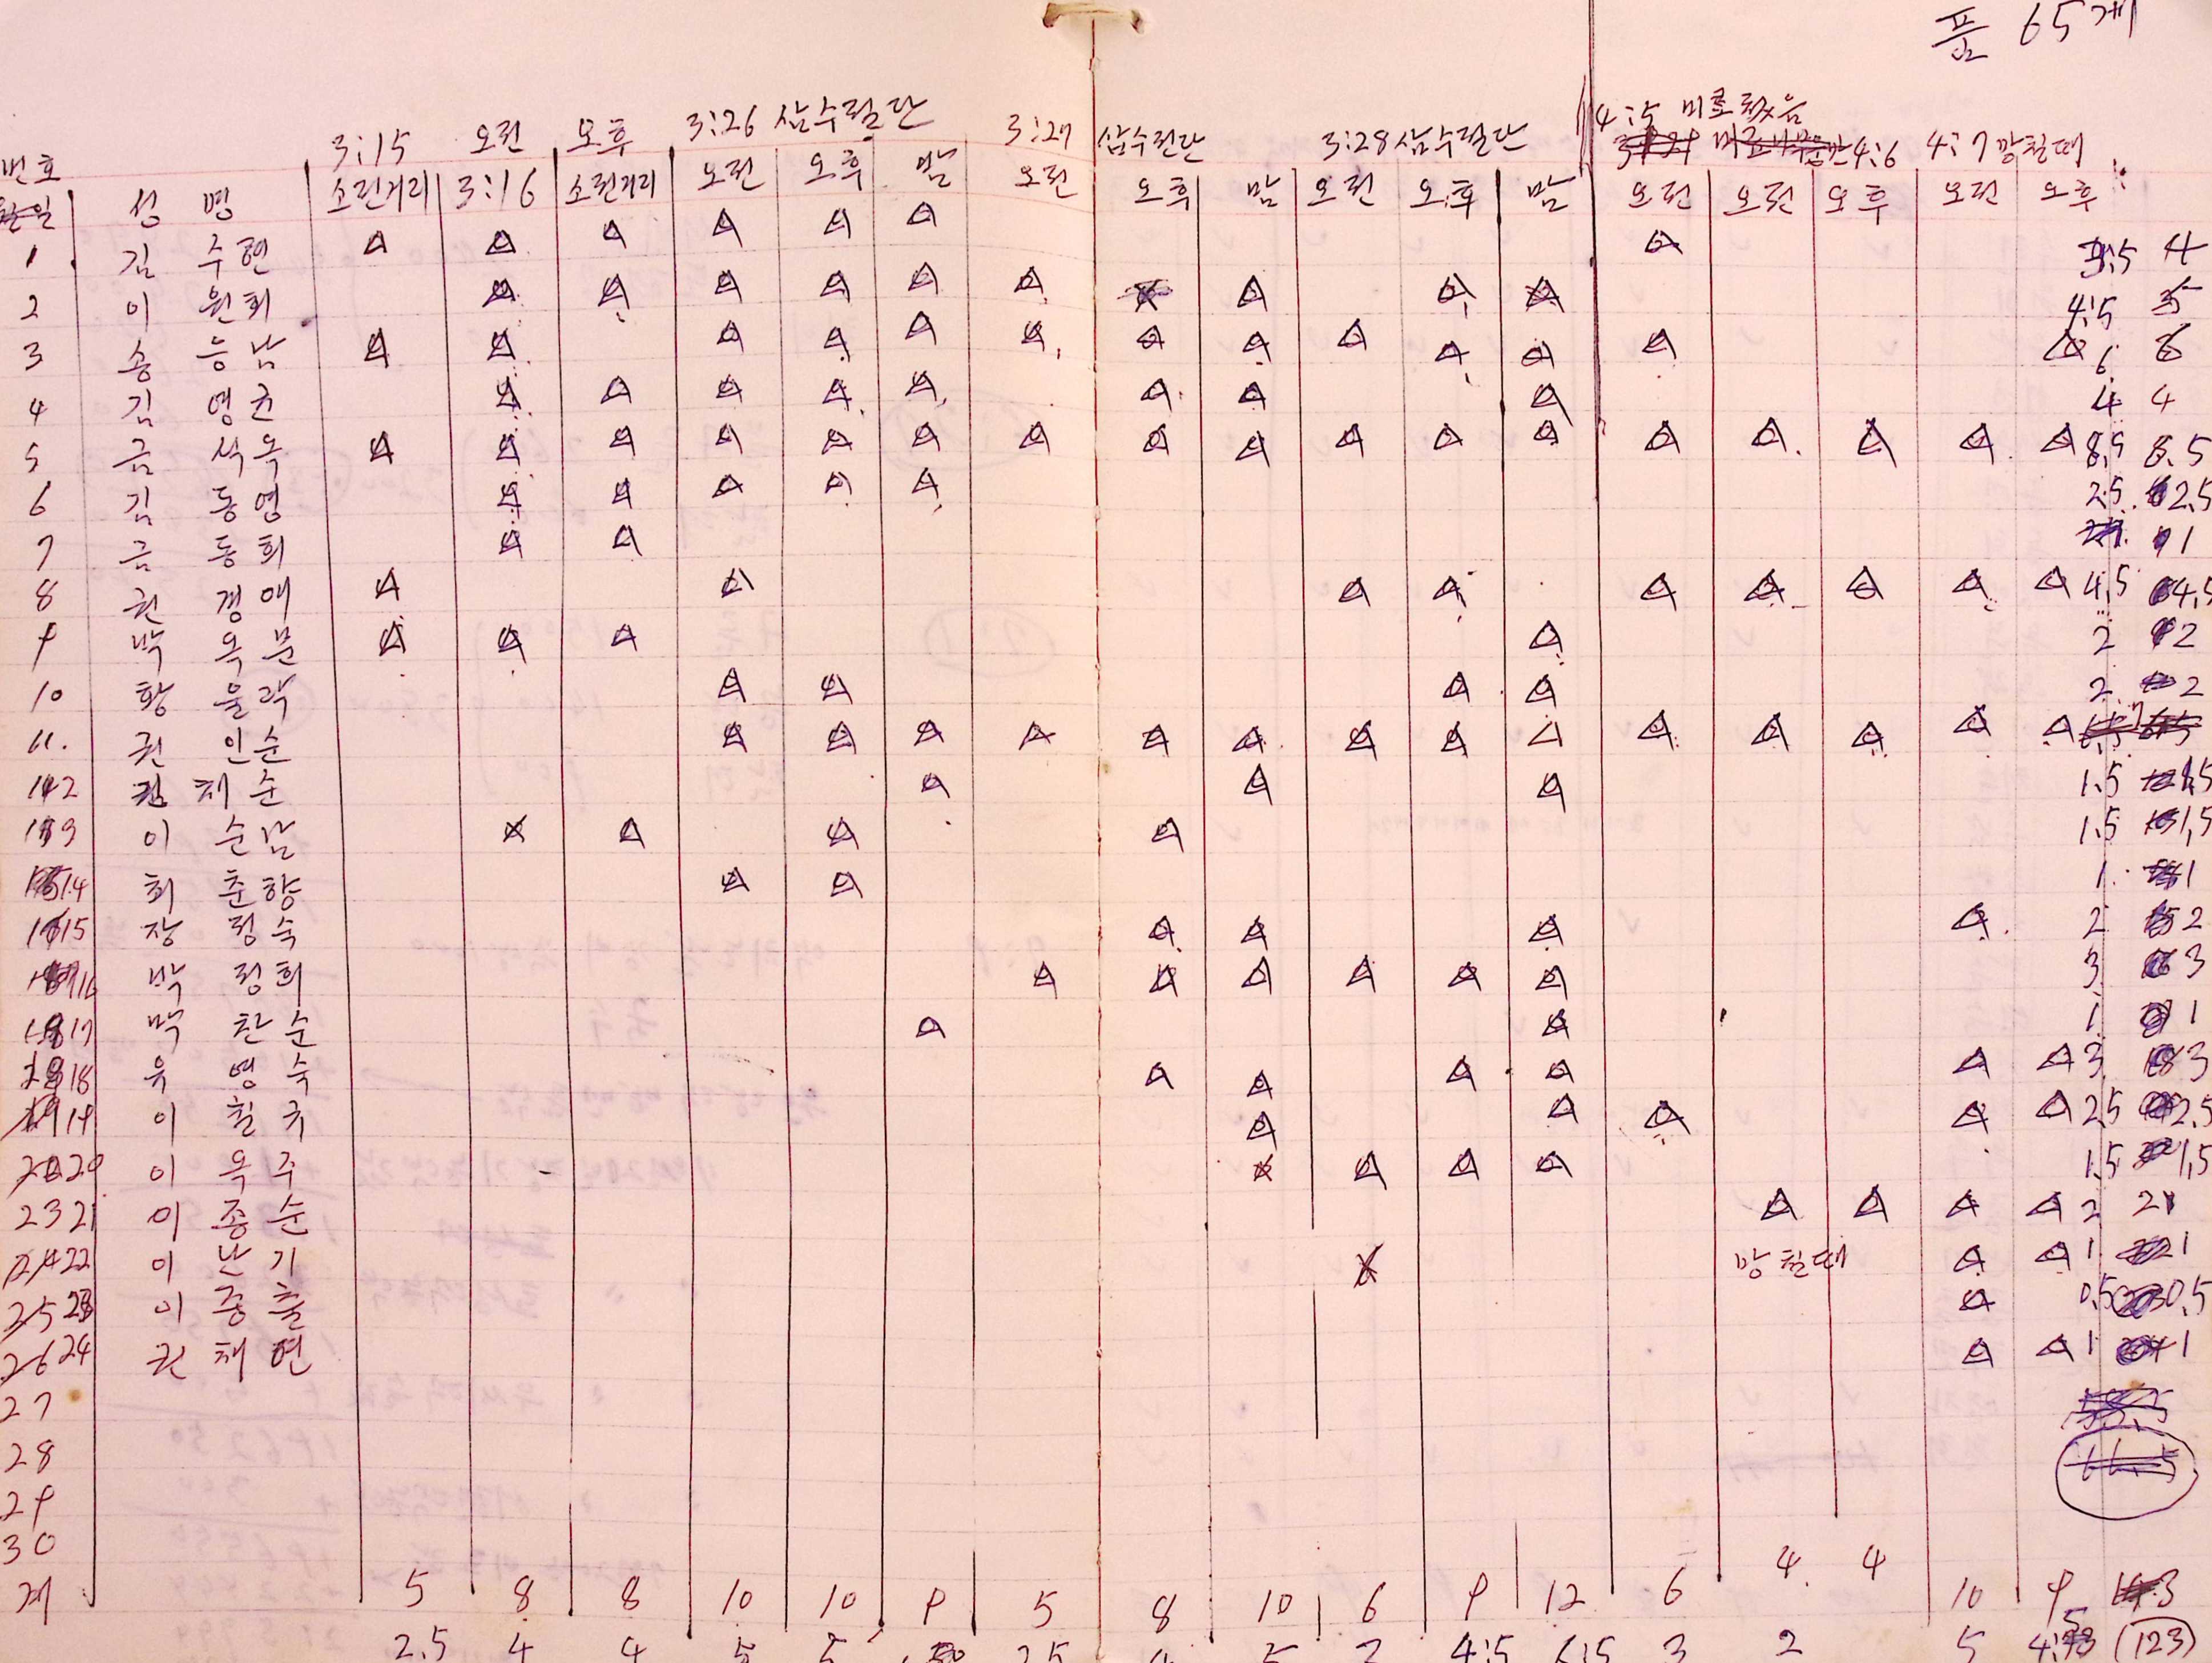 품 65개
3:15 오전 오후 3:26 삼수절단 3:27 삼수절단 3:28 삼수절단 4:5 비료
4:6 4:7 깡칠때
번호 성 명 소린거리 3:16 소린거리 오전 오후 밤 오전 오후 밤 오전 오후 밤 오전 오전 오후 오전 오후
1 김 수현 4
2 이 원희 4.5 5
3 송 능남 6 6
4 김 영균 4 4
5 금 석옥 8.5 8.5
6 김 동영 2.5 2.5
7 금 동희 1
8 권 경애 4.5 4.5
9 박 옥분 2 2
10 황 울락 2 2
11. 권 인순 7
12 권 채순 1.5 1.5
13 이 순남 1.5 1.5
14 최 춘향 1 1
15 장 정숙 2 2
16 박 정희 3 3
17 박 찬순 1 1
18 유 영숙 3 3
19 이 칠규 2.5 2.5
20 이 옥주 1.5 1.5
21 이 종순 2 2
22 이 난기 망칠때 1 1
23 이 중출 0.5 0.5
24 권 채연 1 1
27
28 66.5
29
30
계 5 8 8 10 10 9 5 8 10 6 9 12 6 4 4 10 9
2.5 4 4 5 5 2.5 4 5 3 4:5 6:5 3 2 5 (123)